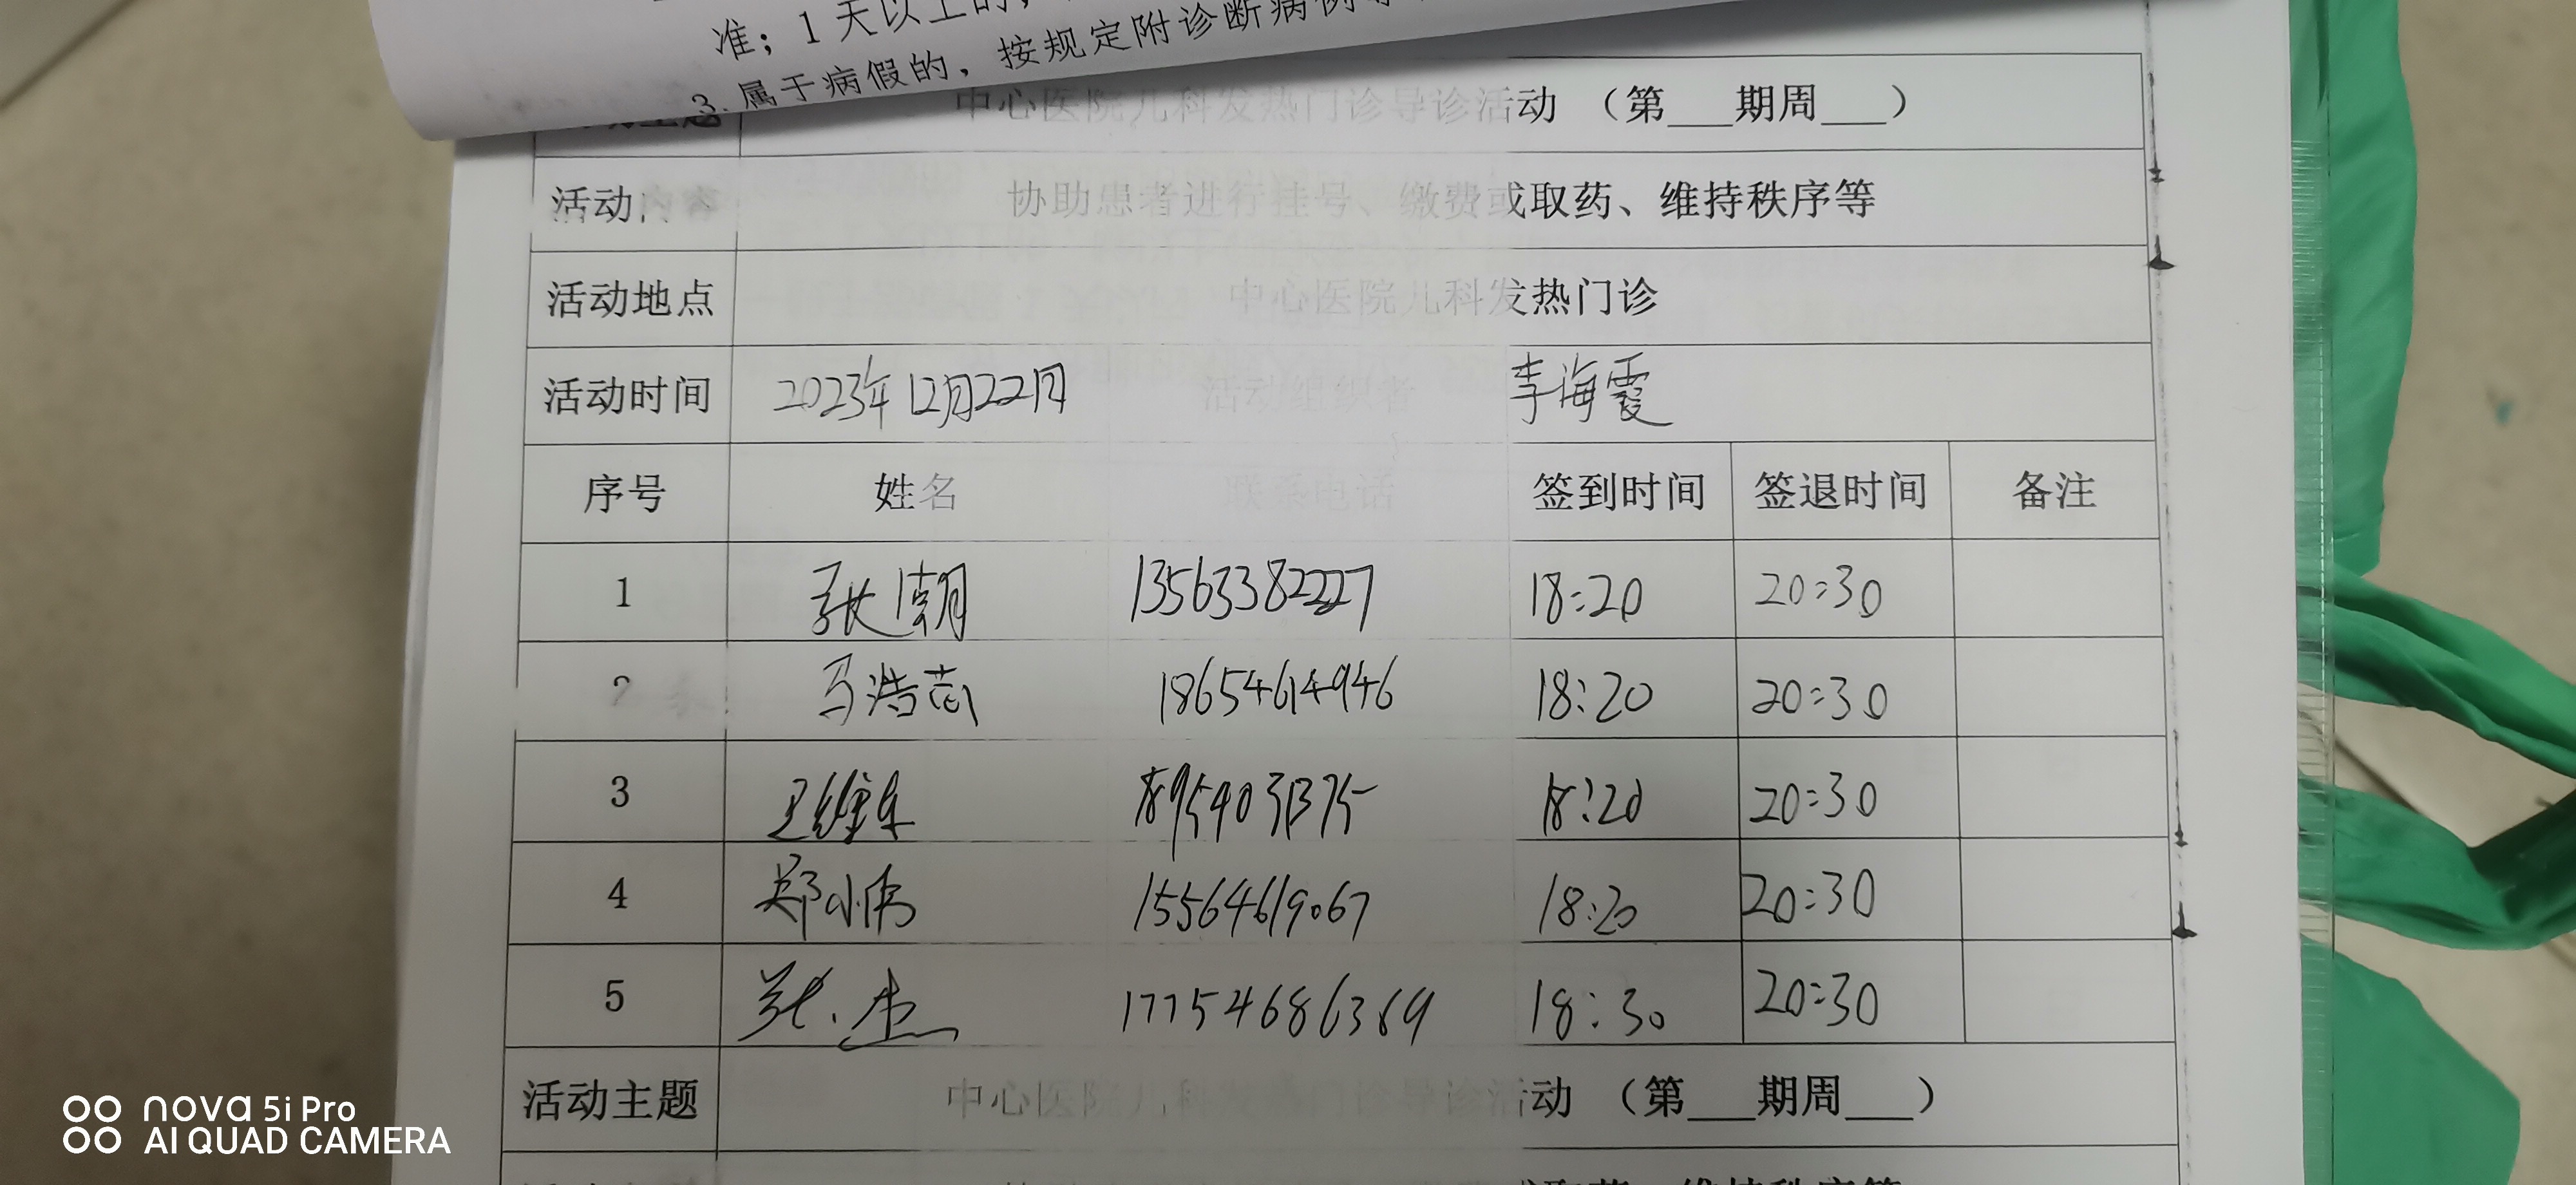 准；1 天以上的，
3.属于病假的，按规定附诊断病例
中心医院儿科发热门诊导诊活动 （第___期周___）
活动内容 协助患者进行挂号、缴费或取药、维持秩序等
活动地点 中心医院儿科发热门诊
活动时间 2023年12月22日 活动组织者 李海霞
序号 姓名 联系电话 签到时间 签退时间 备注
1 张潮 13563382227 18:20 20:30
2 马浩茹 18654614946 18:20 20:30
3 18:20 20:30
4 郑小伟 15564619067 18:20 20:30
5 张杰 17754686369 18:30 20:30
活动主题 中心医院儿科发热门诊导诊活动 （第___期周___）
nova 5i Pro
AI QUAD CAMERA